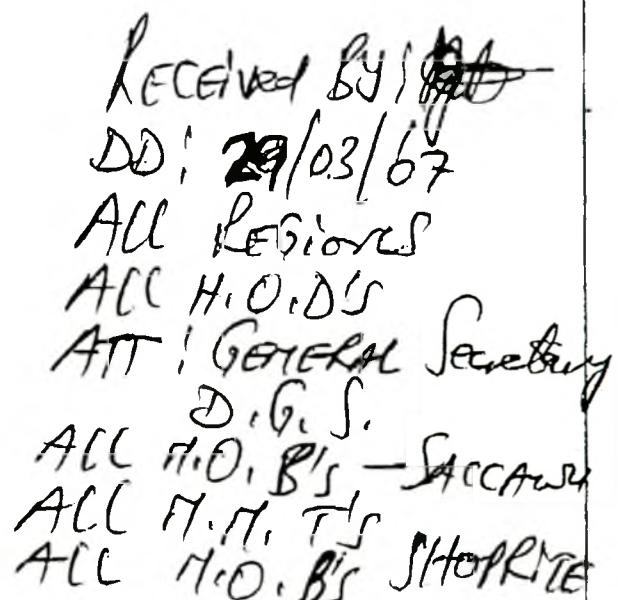 Received By:
DD: 29/03/07
All Regions
All H.O.D's
ATT: General Secretary
D.G.S.
All N.O.B's – SACCAWU
All N.M.T's
All N.O.B's SHOPRITE